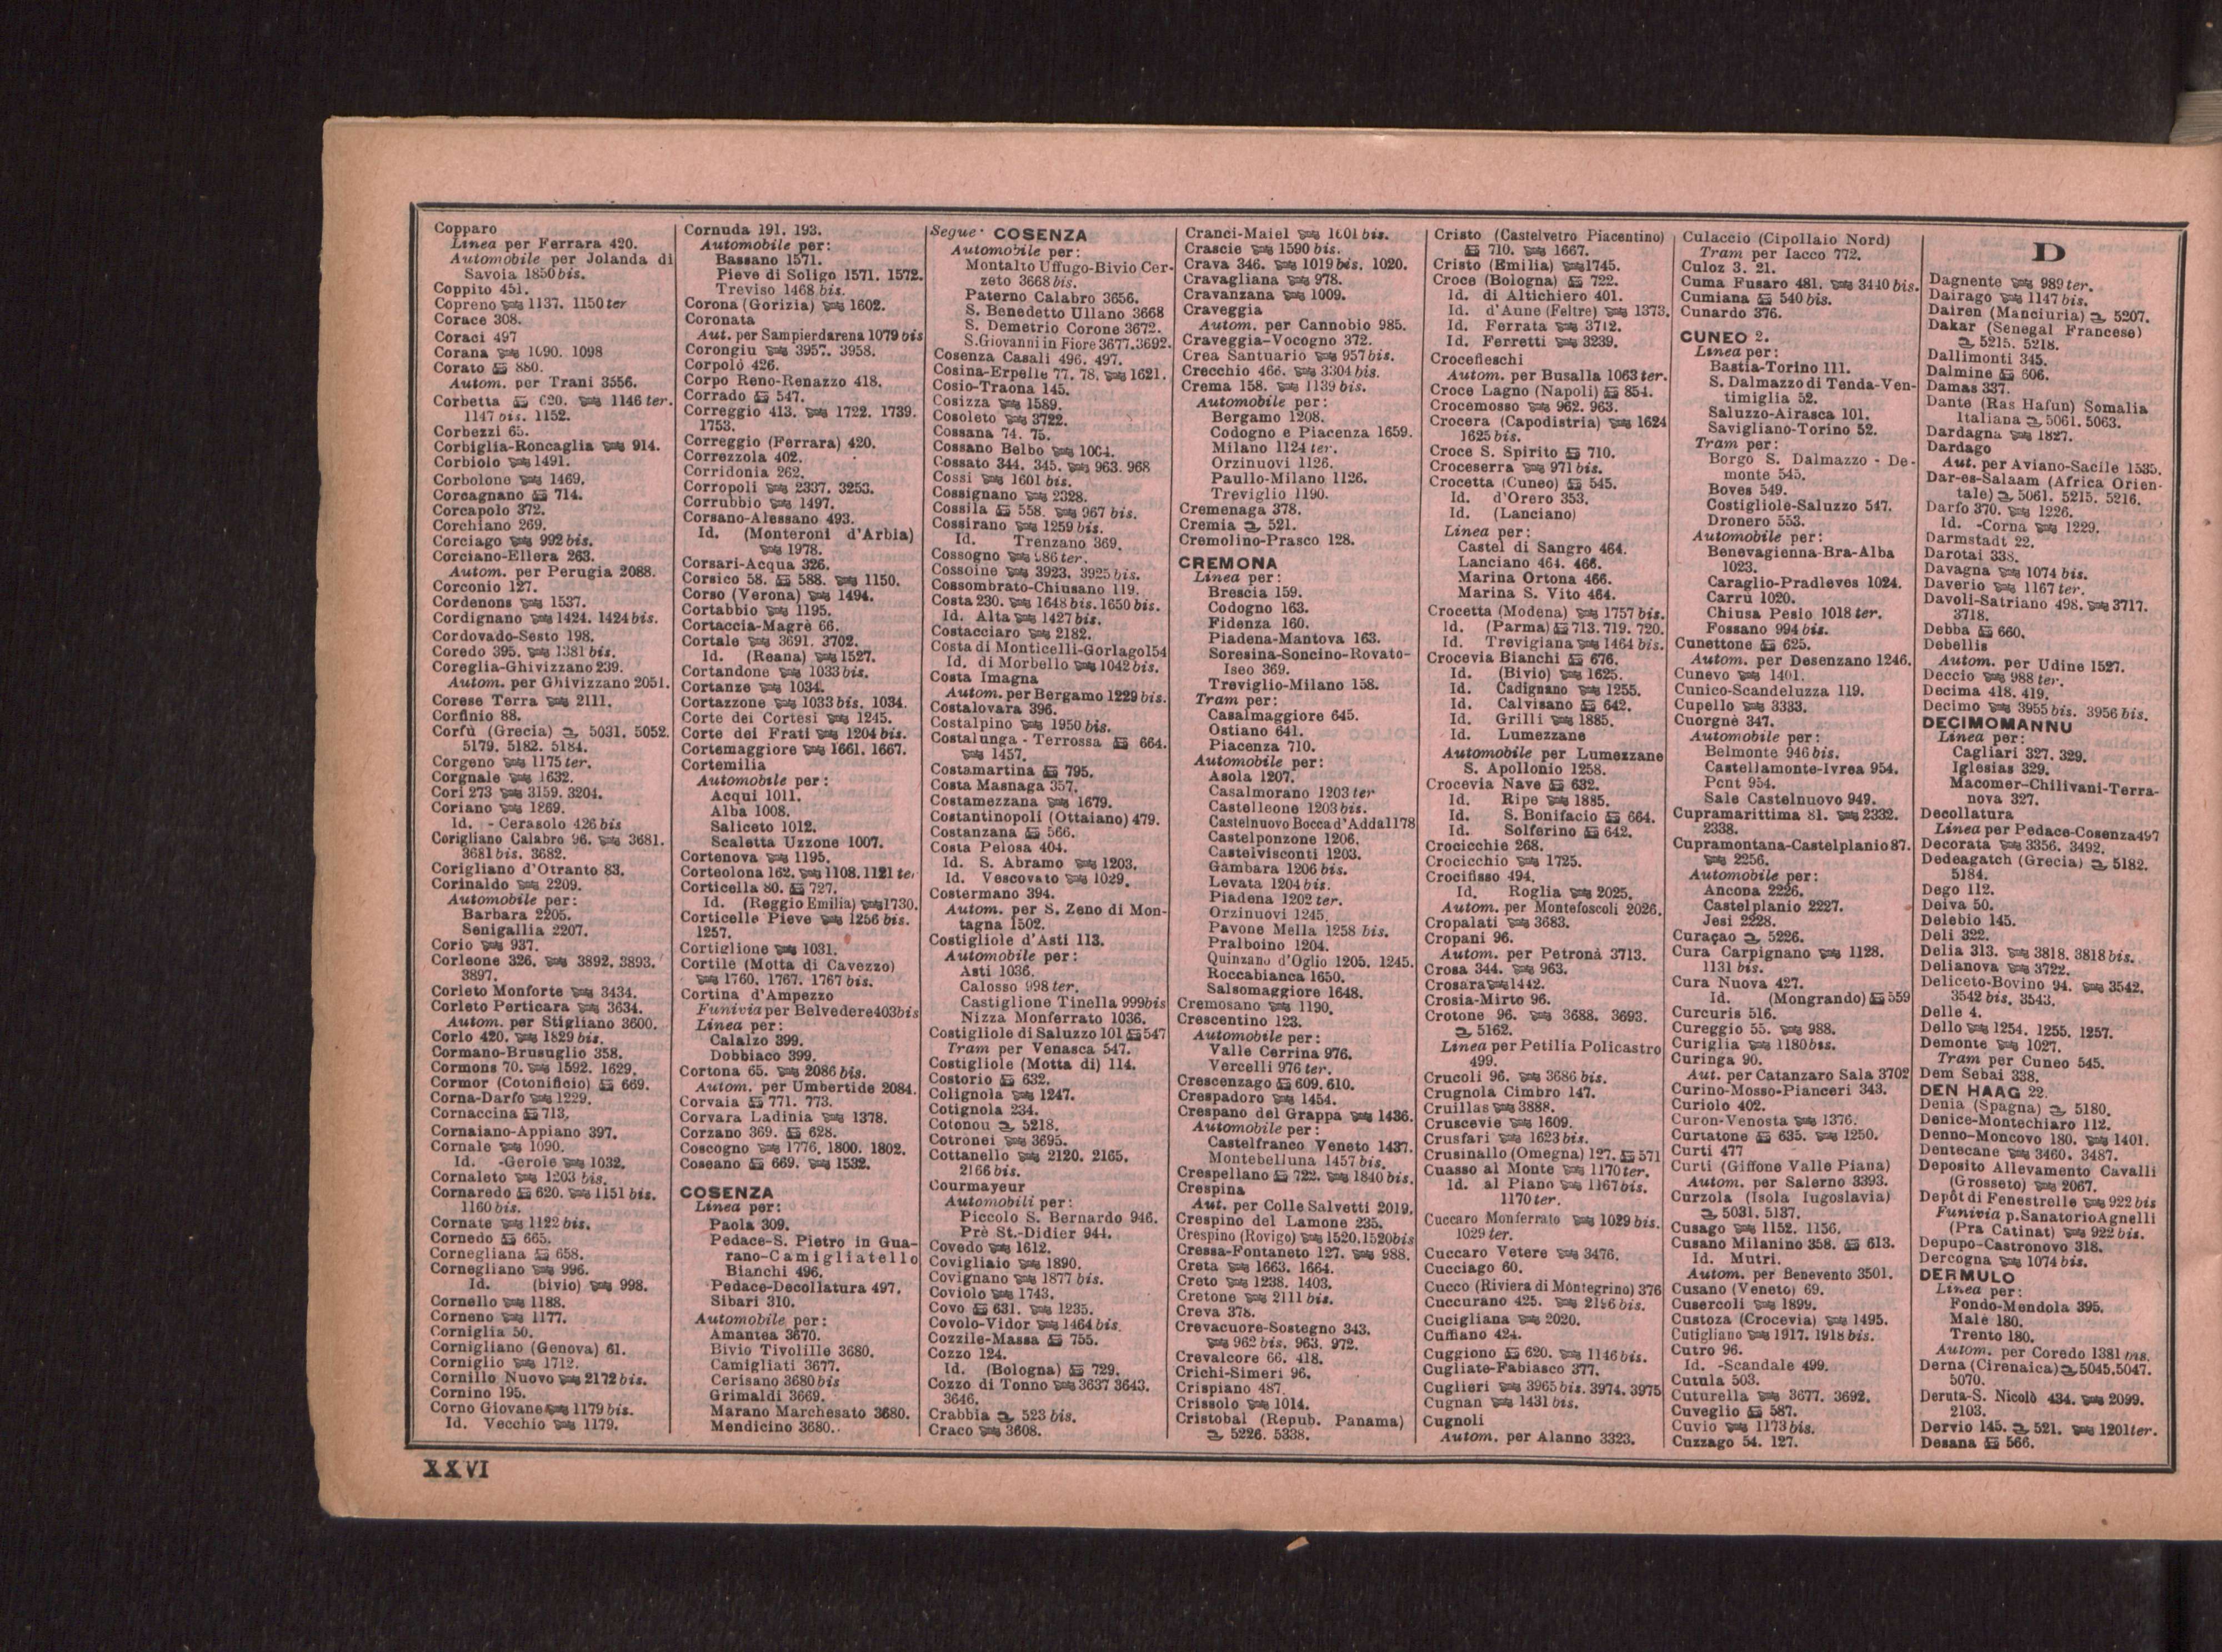 Copparo
Linea per Ferrara 420.
Automobile per Jolanda di
Savoia 1850 bis.
Coppito 451.
Copreno 1137. 1150 ter
Corace 308.
Coraci 497
Corana 1090. 1098
Corato 880.
Autom. per Trani 3556.
Corbetta 620. 1146 ter.
1147 bis. 1152.
Corbezzi 65.
Corbiglia-Roncaglia 914.
Corbiolo 1491.
Corbolone 1469.
Corcagnano 714.
Corcapolo 372.
Corchiano 269.
Corciago 992 bis.
Corciano-Ellera 263.
Autom. per Perugia 2088.
Corconio 127.
Cordenons 1537.
Cordignano 1424. 1424 bis.
Cordovado-Sesto 198.
Coredo 395. 1381 bis.
Coreglia-Ghivizzano 239.
Autom. per Ghivizzano 2051.
Corese Terra 2111.
Corfinio 88.
Corfù (Grecia) 5031. 5052.
5179. 5182. 5184.
Corgeno 1175 ter.
Corgnale 1632.
Cori 273 3159. 3204.
Coriano 1869.
Id. - Cerasolo 426 bis
Corigliano Calabro 96. 3681.
3681 bis. 3682.
Corigliano d'Otranto 83.
Corinaldo 2209.
Automobile per:
Barbara 2205.
Senigallia 2207.
Corio 937.
Corleone 326. 3892. 3893.
3897.
Corleto Monforte 3434.
Corleto Perticara 3634.
Autom. per Stigliano 3600.
Corlo 420. 1829 bis.
Cormano-Brusuglio 358.
Cormons 70. 1592. 1629.
Cormor (Cotonificio) 669.
Corna-Darfo 1229.
Cornaccina 713.
Cornaiano-Appiano 397.
Cornale 1090.
Id. -Gerole 1032.
Cornaleto 1203 bis.
Cornaredo 620. 1151 bis.
1160 bis.
Cornate 1122 bis.
Cornedo 665.
Cornegliana 658.
Cornegliano 996.
Id. (bivio) 998.
Cornello 1188.
Corneno 1177.
Corniglia 50.
Cornigliano (Genova) 61.
Corniglio 1712.
Cornillo Nuovo 2172 bis.
Cornino 195.
Corno Giovane 1179 bis.
Id. Vecchio 1179.
Cornuda 191. 193.
Automobile per:
Bassano 1571.
Pieve di Soligo 1571. 1572.
Treviso 1468 bis.
Corona (Gorizia) 1602.
Coronata
Aut. per Sampierdarena 1079 bis
Corongiu 3957. 3958.
Corpolò 426.
Corpo Reno-Renazzo 418.
Corrado 547.
Correggio 413. 1722. 1739.
1753.
Correggio (Ferrara) 420.
Correzzola 402.
Corridonia 262.
Corropoli 2337. 3253.
Corrubbio 1497.
Corsano-Alessano 493.
Id. (Monteroni d'Arbia)
1978.
Corsari-Acqua 326.
Corsico 58. 588. 1150.
Corso (Verona) 1494.
Cortabbio 1195.
Cortaccia-Magrè 66.
Cortale 3691. 3702.
Id. (Reana) 1527.
Cortandone 1033 bis.
Cortanze 1034.
Cortazzone 1033 bis. 1034.
Corte dei Cortesi 1245.
Corte dei Frati 1204 bis.
Cortemaggiore 1661. 1667.
Cortemilia
Automobile per:
Acqui 1011.
Alba 1008.
Saliceto 1012.
Scaletta Uzzone 1007.
Cortenova 1195.
Corteolona 162. 1108. 1121 ter
Corticella 80. 727.
Id. (Reggio Emilia) 1730.
Corticelle Pieve 1256 bis.
1257.
Cortiglione 1031.
Cortile (Motta di Cavezzo)
1760. 1767. 1767 bis.
Cortina d'Ampezzo
Funivia per Belvedere 403bis
Linea per:
Calalzo 399.
Dobbiaco 399.
Cortona 65. 2086 bis.
Autom. per Umbertide 2084.
Corvaia 771. 773.
Corvara Ladinia 1378.
Corzano 369. 628.
Coscogno 1776. 1800. 1802.
Coseano 669. 1532.
COSENZA
Linea per:
Paola 309.
Pedace-S. Pietro in Gua-
rano-Camigliatello
Bianchi 496.
Pedace-Decollatura 497.
Sibari 310.
Automobile per:
Amantea 3670.
Bivio Tivolille 3680.
Camigliati 3677.
Cerisano 3680 bis
Grimaldi 3669.
Marano Marchesato 3680.
Mendicino 3680.
Segue COSENZA
Automobile per:
Montalto Uffugo-Bivio Cer-
zeto 3668 bis.
Paterno Calabro 3656.
S. Benedetto Ullano 3668
S. Demetrio Corone 3672.
S. Giovanni in Fiore 3677. 3692.
Cosenza Casali 496. 497.
Cosina-Erpelle 77. 78. 1621.
Cosio-Traona 145.
Cosizza 1589.
Cosoleto 3722.
Cossana 74. 75.
Cossano Belbo 1004.
Cossato 344. 345. 963. 968
Cossi 1601 bis.
Cossignano 2328.
Cossila 558. 967 bis.
Cossirano 1259 bis.
Id. Trenzano 369.
Cossogno 986 ter.
Cossoine 3923. 3925 bis.
Cossombrato-Chiusano 119.
Costa 230. 1648 bis. 1650 bis.
Id. Alta 1427 bis.
Costacciaro 2182.
Costa di Monticelli-Gorlago 154
Id. di Morbello 1042 bis.
Costa Imagna
Autom. per Bergamo 1229 bis.
Costalovara 396.
Costalpino 1950 bis.
Costalunga - Terrossa 664.
1457.
Costamartina 795.
Costa Masnaga 357.
Costamezzana 1679.
Costantinopoli (Ottaiano) 479.
Costanzana 566.
Costa Pelosa 404.
Id. S. Abramo 1203.
Id. Vescovato 1029.
Costermano 394.
Autom. per S. Zeno di Mon-
tagna 1502.
Costigliole d'Asti 113.
Automobile per:
Asti 1036.
Calosso 998 ter.
Castiglione Tinella 999bis
Nizza Monferrato 1036.
Costigliole di Saluzzo 101 547
Tram per Venasca 547.
Costigliole (Motta di) 114.
Costorio 632.
Colignola 1247.
Cotignola 234.
Cotonou 5218.
Cotronei 3695.
Cottanello 2120. 2165.
2166 bis.
Courmayeur
Automobili per:
Piccolo S. Bernardo 946.
Prè St.-Didier 944.
Covedo 1612.
Covigliaio 1890.
Covignano 1877 bis.
Coviolo 1743.
Covo 631. 1235.
Covolo-Vidor 1464 bis.
Cozzile-Massa 755.
Cozzo 124.
Id. (Bologna) 729.
Cozzo di Tonno 3637 3643.
3646.
Crabbia 523 bis.
Craco 3608.
Cranci-Maiel 1601 bis.
Crascie 1590 bis.
Crava 346. 1019 bis. 1020.
Cravagliana 978.
Cravanzana 1009.
Craveggia
Autom. per Cannobio 985.
Craveggia-Vocogno 372.
Crea Santuario 957 bis.
Crecchio 466. 3304 bis.
Crema 158. 1139 bis.
Automobile per:
Bergamo 1208.
Codogno e Piacenza 1659.
Milano 1124 ter.
Orzinuovi 1126.
Paullo-Milano 1126.
Treviglio 1190.
Cremenaga 378.
Cremia 521.
Cremolino-Prasco 128.
CREMONA
Linea per:
Brescia 159.
Codogno 163.
Fidenza 160.
Piadena-Mantova 163.
Soresina-Soncino-Rovato-
Iseo 369.
Treviglio-Milano 158.
Tram per:
Casalmaggiore 645.
Ostiano 641.
Piacenza 710.
Automobile per:
Asola 1207.
Casalmorano 1203 ter
Castelleone 1203 bis.
Castelnuovo Bocca d'Adda 1178
Castelponzone 1206.
Castelvisconti 1203.
Gambara 1206 bis.
Levata 1204 bis.
Piadena 1202 ter.
Orzinuovi 1245.
Pavone Mella 1258 bis.
Pralboino 1204.
Quinzano d'Oglio 1205. 1245.
Roccabianca 1650.
Salsomaggiore 1648.
Cremosano 1190.
Crescentino 123.
Automobile per:
Valle Cerrina 976.
Vercelli 976 ter.
Crescenzago 609. 610.
Crespadoro 1454.
Crespano del Grappa 1436.
Automobile per:
Castelfranco Veneto 1437.
Montebelluna 1457 bis.
Crespellano 722. 1840 bis.
Crespina
Aut. per Colle Salvetti 2019.
Crespino del Lamone 235.
Crespino (Rovigo) 1520. 1520bis
Cressa-Fontaneto 127. 988.
Creta 1663. 1664.
Creto 1238. 1403.
Cretone 2111 bis.
Creva 378.
Crevacuore-Sostegno 343.
962 bis. 963. 972.
Crevalcore 66. 418.
Crichi-Simeri 96.
Crispiano 487.
Crissolo 1014.
Cristobal (Repub. Panama)
5226. 5338.
Cristo (Castelvetro Piacentino)
710. 1667.
Cristo (Emilia) 1745.
Croce (Bologna) 722.
Id. di Altichiero 401.
Id. d'Aune (Feltre) 1373.
Id. Ferrata 3712.
Id. Ferretti 3239.
Crocefieschi
Autom. per Busalla 1063 ter.
Croce Lagno (Napoli) 854.
Crocemosso 962. 963.
Crocera (Capodistria) 1624
1625 bis.
Croce S. Spirito 710.
Croceserra 971 bis.
Crocetta (Cuneo) 545.
Id. d'Orero 353.
Id. (Lanciano)
Linea per:
Castel di Sangro 464.
Lanciano 464. 466.
Marina Ortona 466.
Marina S. Vito 464.
Crocetta (Modena) 1757 bis.
Id. (Parma) 713. 719. 720.
Id. Trevigiana 1464 bis.
Crocevia Bianchi 676.
Id. (Bivio) 1625.
Id. Cadignano 1255.
Id. Calvisano 642.
Id. Grilli 1885.
Id. Lumezzane
Automobile per Lumezzane
S. Apollonio 1258.
Crocevia Nave 632.
Id. Ripe 1885.
Id. S. Bonifacio 664.
Id. Solferino 642.
Crocicchie 268.
Crocicchio 1725.
Crocifisso 494.
Id. Roglia 2025.
Autom. per Montefoscoli 2026.
Cropalati 3683.
Cropani 96.
Autom. per Petronà 3713.
Crosa 344. 963.
Crosara 1442.
Crosia-Mirto 96.
Crotone 96. 3688. 3693.
5162.
Linea per Petilia Policastro
499.
Crucoli 96. 3686 bis.
Crugnola Cimbro 147.
Cruillas 3888.
Cruscevie 1609.
Crusfari 1623 bis.
Crusinallo (Omegna) 127. 571
Cuasso al Monte 1170 ter.
Id. al Piano 1167 bis.
1170 ter.
Cuccaro Monferrato 1029 bis.
1029 ter.
Cuccaro Vetere 3476.
Cucciago 60.
Cucco (Riviera di Montegrino) 376
Cuccurano 425. 2196 bis.
Cucigliana 2020.
Cuffiano 424.
Cuggiono 620. 1146 bis.
Cugliate-Fabiasco 377.
Cuglieri 3965 bis. 3974. 3975
Cugnan 1431 bis.
Cugnoli
Autom. per Alanno 3323.
Culaccio (Cipollaio Nord)
Tram per Iacco 772.
Culoz 3. 21.
Cuma Fusaro 481. 3440 bis.
Cumiana 540 bis.
Cunardo 376.
CUNEO 2.
Linea per:
Bastia-Torino 111.
S. Dalmazzo di Tenda-Ven-
timiglia 52.
Saluzzo-Airasca 101.
Savigliano-Torino 52.
Tram per:
Borgo S. Dalmazzo - De-
monte 545.
Boves 549.
Costigliole-Saluzzo 547.
Dronero 553.
Automobile per:
Benevagienna-Bra-Alba
1023.
Caraglio-Pradleves 1024.
Carrù 1020.
Chiusa Pesio 1018 ter.
Fossano 994 bis.
Cunettone 625.
Autom. per Desenzano 1246.
Cunevo 1401.
Cunico-Scandeluzza 119.
Cupello 3333.
Cuorgnè 347.
Automobile per:
Belmonte 946 bis.
Castellamonte-Ivrea 954.
Pont 954.
Sale Castelnuovo 949.
Cupramarittima 81. 2332.
2338.
Cupramontana-Castelplanio 87.
2256.
Automobile per:
Ancona 2226.
Castelplanio 2227.
Jesi 2228.
Curaçao 5226.
Cura Carpignano 1128.
1131 bis.
Cura Nuova 427.
Id. (Mongrando) 559
Curcuris 516.
Cureggio 55. 988.
Curiglia 1180 bis.
Curinga 90.
Aut. per Catanzaro Sala 3702
Curino-Mosso-Pianceri 343.
Curiolo 402.
Curon-Venosta 1376.
Curtatone 635. 1250.
Curti 477
Curti (Giffone Valle Piana)
Autom. per Salerno 3393.
Curzola (Isola Iugoslavia)
5031. 5137.
Cusago 1152. 1156.
Cusano Milanino 358. 613.
Id. Mutri.
Autom. per Benevento 3501.
Cusano (Veneto) 69.
Cusercoli 1899.
Custoza (Crocevia) 1495.
Cutigliano 1917. 1918 bis.
Cutro 96.
Id. -Scandale 499.
Cutula 503.
Cuturella 3677. 3692.
Cuveglio 587.
Cuvio 1173 bis.
Cuzzago 54. 127.
D
Dagnente 989 ter.
Dairago 1147 bis.
Dairen (Manciuria) 5207.
Dakar (Senegal Francese)
5215. 5218.
Dallimonti 345.
Dalmine 606.
Damas 337.
Dante (Ras Hafun) Somalia
Italiana 5061. 5063.
Dardagna 1827.
Dardago
Aut. per Aviano-Sacile 1535.
Dar-es-Salaam (Africa Orien-
tale) 5061. 5215. 5216.
Darfo 370. 1226.
Id. -Corna 1229.
Darmstadt 22.
Darotai 338.
Davagna 1074 bis.
Daverio 1167 ter.
Davoli-Satriano 498. 3717.
3718.
Debba 660.
Debellis
Autom. per Udine 1527.
Deccio 988 ter.
Decima 418. 419.
Decimo 3955 bis. 3956 bis.
DECIMOMANNU
Linea per:
Cagliari 327. 329.
Iglesias 329.
Macomer-Chilivani-Terra-
nova 327.
Decollatura
Linea per Pedace-Cosenza 497
Decorata 3356. 3492.
Dedeagatch (Grecia) 5182.
5184.
Dego 112.
Deiva 50.
Delebio 145.
Deli 322.
Delia 313. 3818. 3818 bis.
Delianova 3722.
Deliceto-Bovino 94. 3542.
3542 bis. 3543.
Delle 4.
Dello 1254. 1255. 1257.
Demonte 1027.
Tram per Cuneo 545.
Dem Sebai 338.
DEN HAAG 22.
Denia (Spagna) 5180.
Denice-Montechiaro 112.
Denno-Moncovo 180. 1401.
Dentecane 3460. 3487.
Deposito Allevamento Cavalli
(Grosseto) 2067.
Depôt di Fenestrelle 922 bis
Funivia p. Sanatorio Agnelli
(Pra Catinat) 922 bis.
Depupo-Castronovo 318.
Dercogna 1074 bis.
DERMULO
Linea per:
Fondo-Mendola 395.
Malè 180.
Trento 180.
Autom. per Coredo 1381 bis.
Derna (Cirenaica) 5045. 5047.
5070.
Deruta-S. Nicolò 434. 2099.
2103.
Dervio 145. 521. 1201 ter.
Desana 566.
XXVI